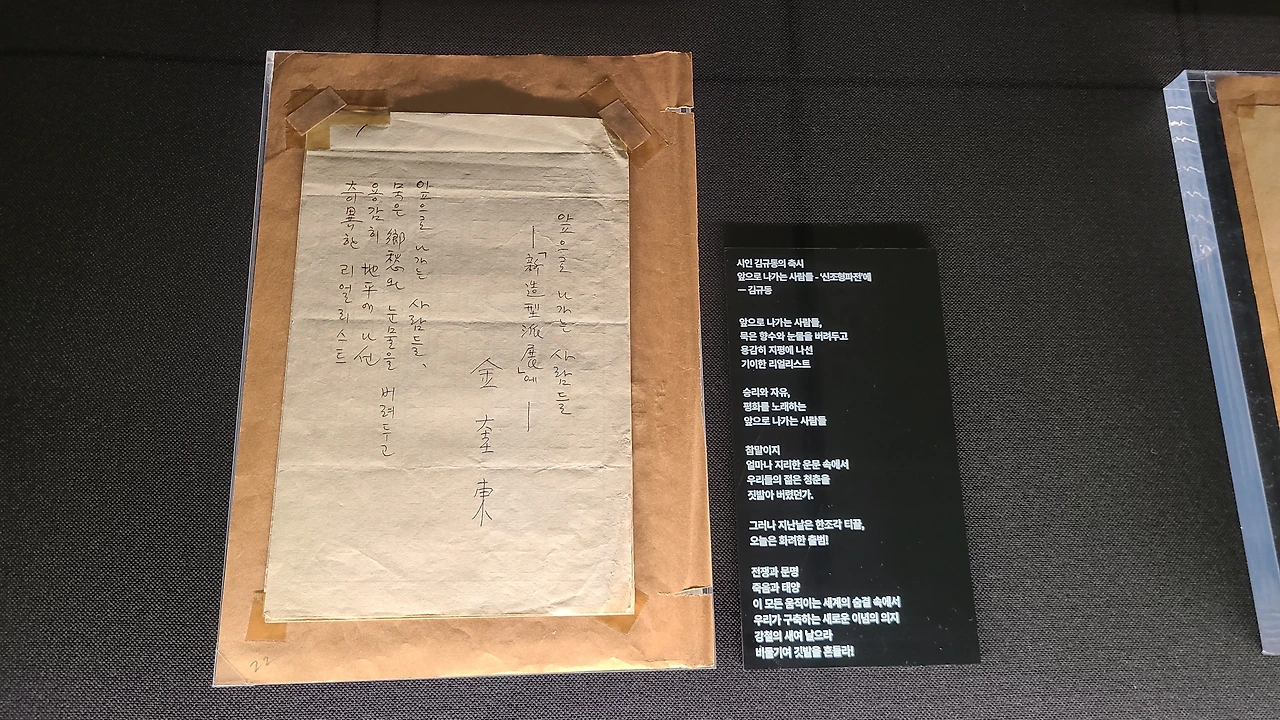 앞으로 나가는 사람들
—「新造型派展」에—
金奎東
앞으로 나가는 사람들,
묵은 鄕愁와 눈물을 버려두고
용감히 地平에 나선
奇異한 리얼리스트
22
시인 김규동의 축시
앞으로 나가는 사람들 - '신조형파전'에
— 김규동
앞으로 나가는 사람들,
묵은 향수와 눈물을 버려두고
용감히 지평에 나선
기이한 리얼리스트
승리와 자유,
평화를 노래하는
앞으로 나가는 사람들
참말이지
얼마나 지리한 운문 속에서
우리들의 젊은 청춘을
짓밟아 버렸던가.
그러나 지난날은 한조각 티끌,
오늘은 화려한 출범!
전쟁과 문명
죽음과 태양
이 모든 움직이는 세계의 숨결 속에서
우리가 구축하는 새로운 이념의 의지
강철의 새여 날으라
비둘기여 깃발을 흔들라!